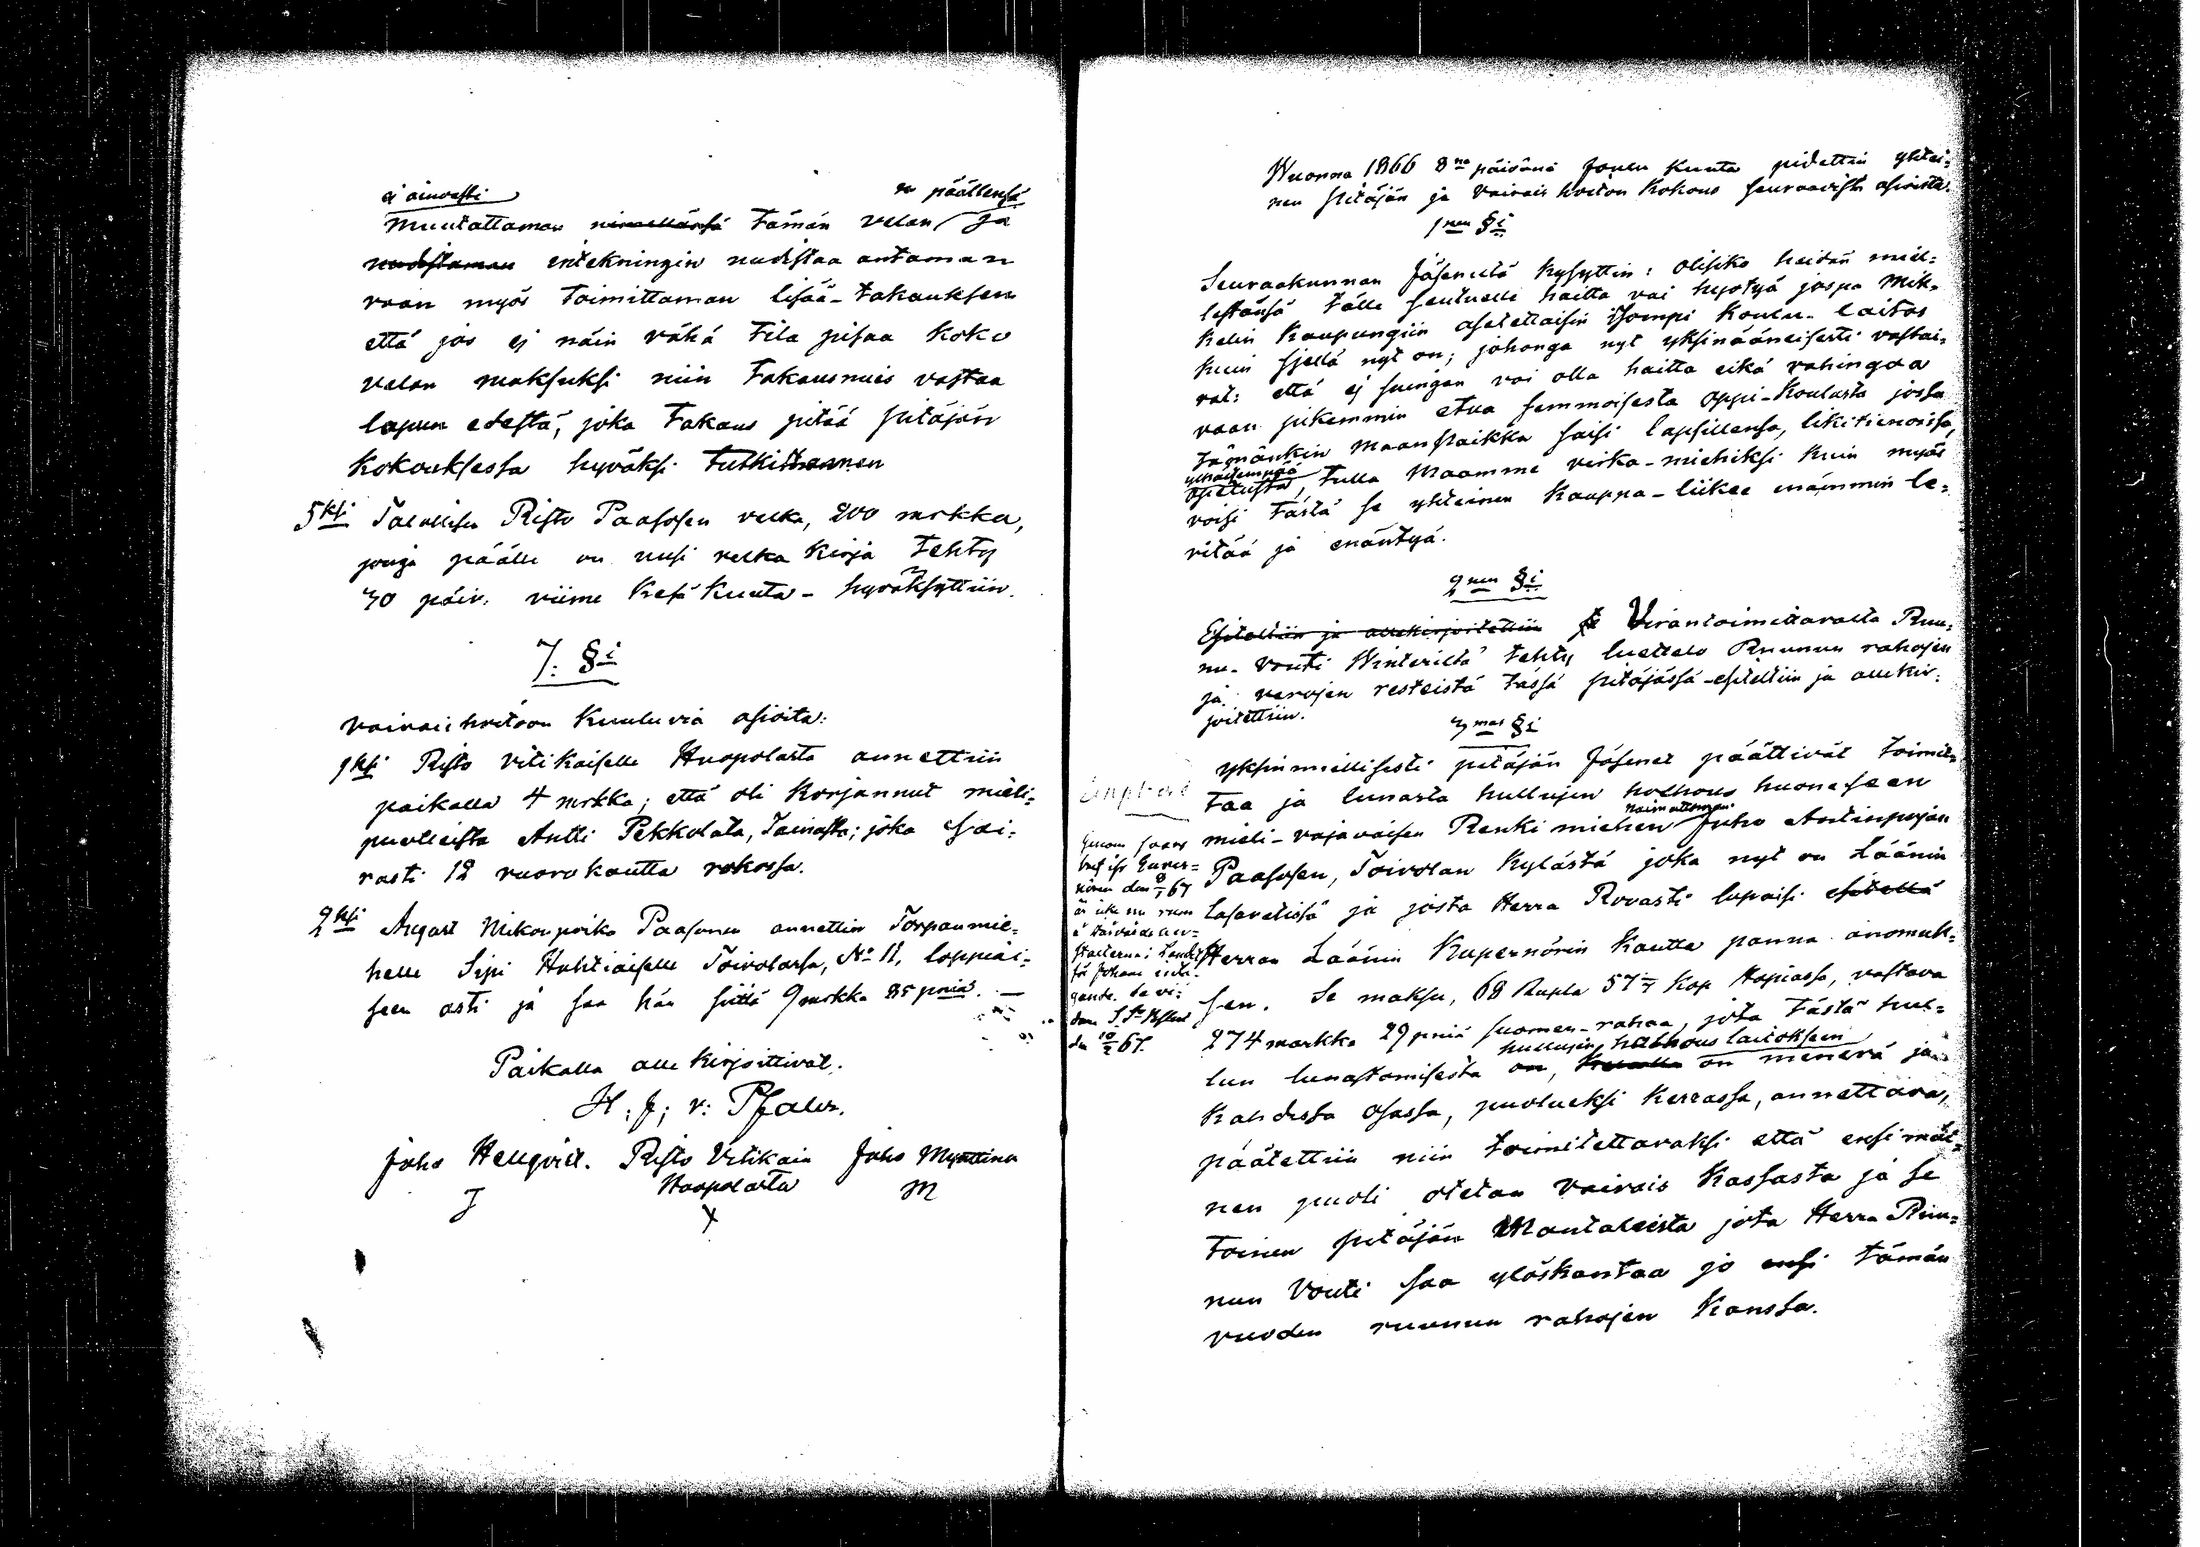 ej ainoasti
n päällensä
muutattaman nimellänsä tämän velan ja
uudistaman intekningin uudistaa antaman
vaan myös toimittaman lisää-takauksen
että jos ej näin vähä tila pisaa koko
velan maksuksi niin takausmies vastaa
lapun edestä, joka takaus pitää pitäjän
kokouksessa hyväksi tutkittaman
5ksi Talollisen Risto Paasosen velka, 200 mrkka,
jonga päälle on uusi velka kirja tehty
30 päiv. viime Kesä Kuuta - hyväksyttiin.
7. §i
vaivaishoitoon kuuluvia asioita:
1ksi Risto Vitikaiselle Huopolasta annettiin
paikalla 4 mrkka; että oli korjannut mieli-
puolleista Antti Pekkolata, Toinasta; joka sai-
rasti 12 vuorokautta rokossa.
2ksi August Mikonpoika Paasonen annettiin Torpanmie-
helle Sipi Huhtiaiselle Toivolassa, No 11, loppiai-
seen asti ja saa hän siitä 9 mrkka 85 pniä. —
Paikalla alle kirjoittivat.
H. f; v: Pfaler.
Joho Hellqvist. Risto Vitikain Joho Mynttinen
Huopolasta
J X M
Wuonna 1866 8na päivänä Joulu kuuta pidettiin yhtei-
nen pitäjän ja vaivais hoiton kokous seuraavista asioista.
1nen §i
Seuraakunnan Jäseneltä kysyttiin: olisiko heidän miel-
lestänsä tälle seutuelle haitta vai hyötyä jospa Mik-
kelin kaupungiin asetettaisiin isompi koulu-laitos
kuin siellä nyt on; johonga nyt yksinääneisesti vastai-
vat: että ej suingan voi olla haitta eikä vahingoa
vaan pikemmin etua semmoisesta oppi-koulusta jossa
tämänkin maanpaikka saisi lapsillensa, likitienoissa,
ylhäisempää
opetusta, tulla Maamme virka-miehiksi kuin myös
voisi tästä se yhteinen kauppa-liikee enämmin le-
vitää ja enäntyä.
2nen §i
Esiteltiin ja allekirjoitettiin se Virantoimittavalta Ruu-
nu-Vouti Winteriltä tehty luettelo Ruunun rahojen
ja verojen resteistä tässä pitäjässä - esiteltiin ja allekir-
joitettiin.
3mas §i
yksinmiellisesti pitäjän Jäsenet päättivät toimit-
taa ja lunasta hullujen holhous huoneseen
naimattoman
mieli-vajavaisen Renki miehen Juho Antinpojan
Paasosen, Toivolan Kylästä joka nyt on Läänin
Lasaretissä ja josta Herra Rovasti lupaisi esitellä
Herran Läänin Kupernörin kautta panna anomuk-
sen. Se maksu, 68 Rupla 57 4/7 kop Hopiassa, vastava
274 markka 29 pniä suomen-rahaa, jota tästä hul-
hullujen holhous laitokseen
lun lunastamisesta on, on menevä ja
kahdessa osassa, puolueksi kerrassa, annettava,
päätettiin niin toimitettavaksi että ensimäi-
nen puoli otetan vaivais kassasta ja se
toinen pitäjän Mantaleista jota Herra Ruu-
nun Vouti saa ylöskantaa jo ensi tämän
vuoden ruunun rahojen kanssa.
Genom svars
bref ifr Guver-
nören den 8/1 67
är icke nu rum